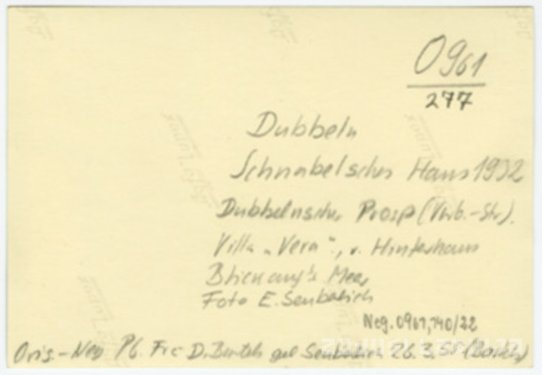 O961
277
Dubbeln
Schnabelsches Haus 1932
Dubbelnscher Prosp (Verb.-Str).
Villa „Vera“, v. Hinterhaus
Blick auf's Meer
Foto E. Senberlich
Neg. 0961, 140/22
Orig.-Neg Pb. Frc D. Bartels gel Senberlich 26.3.